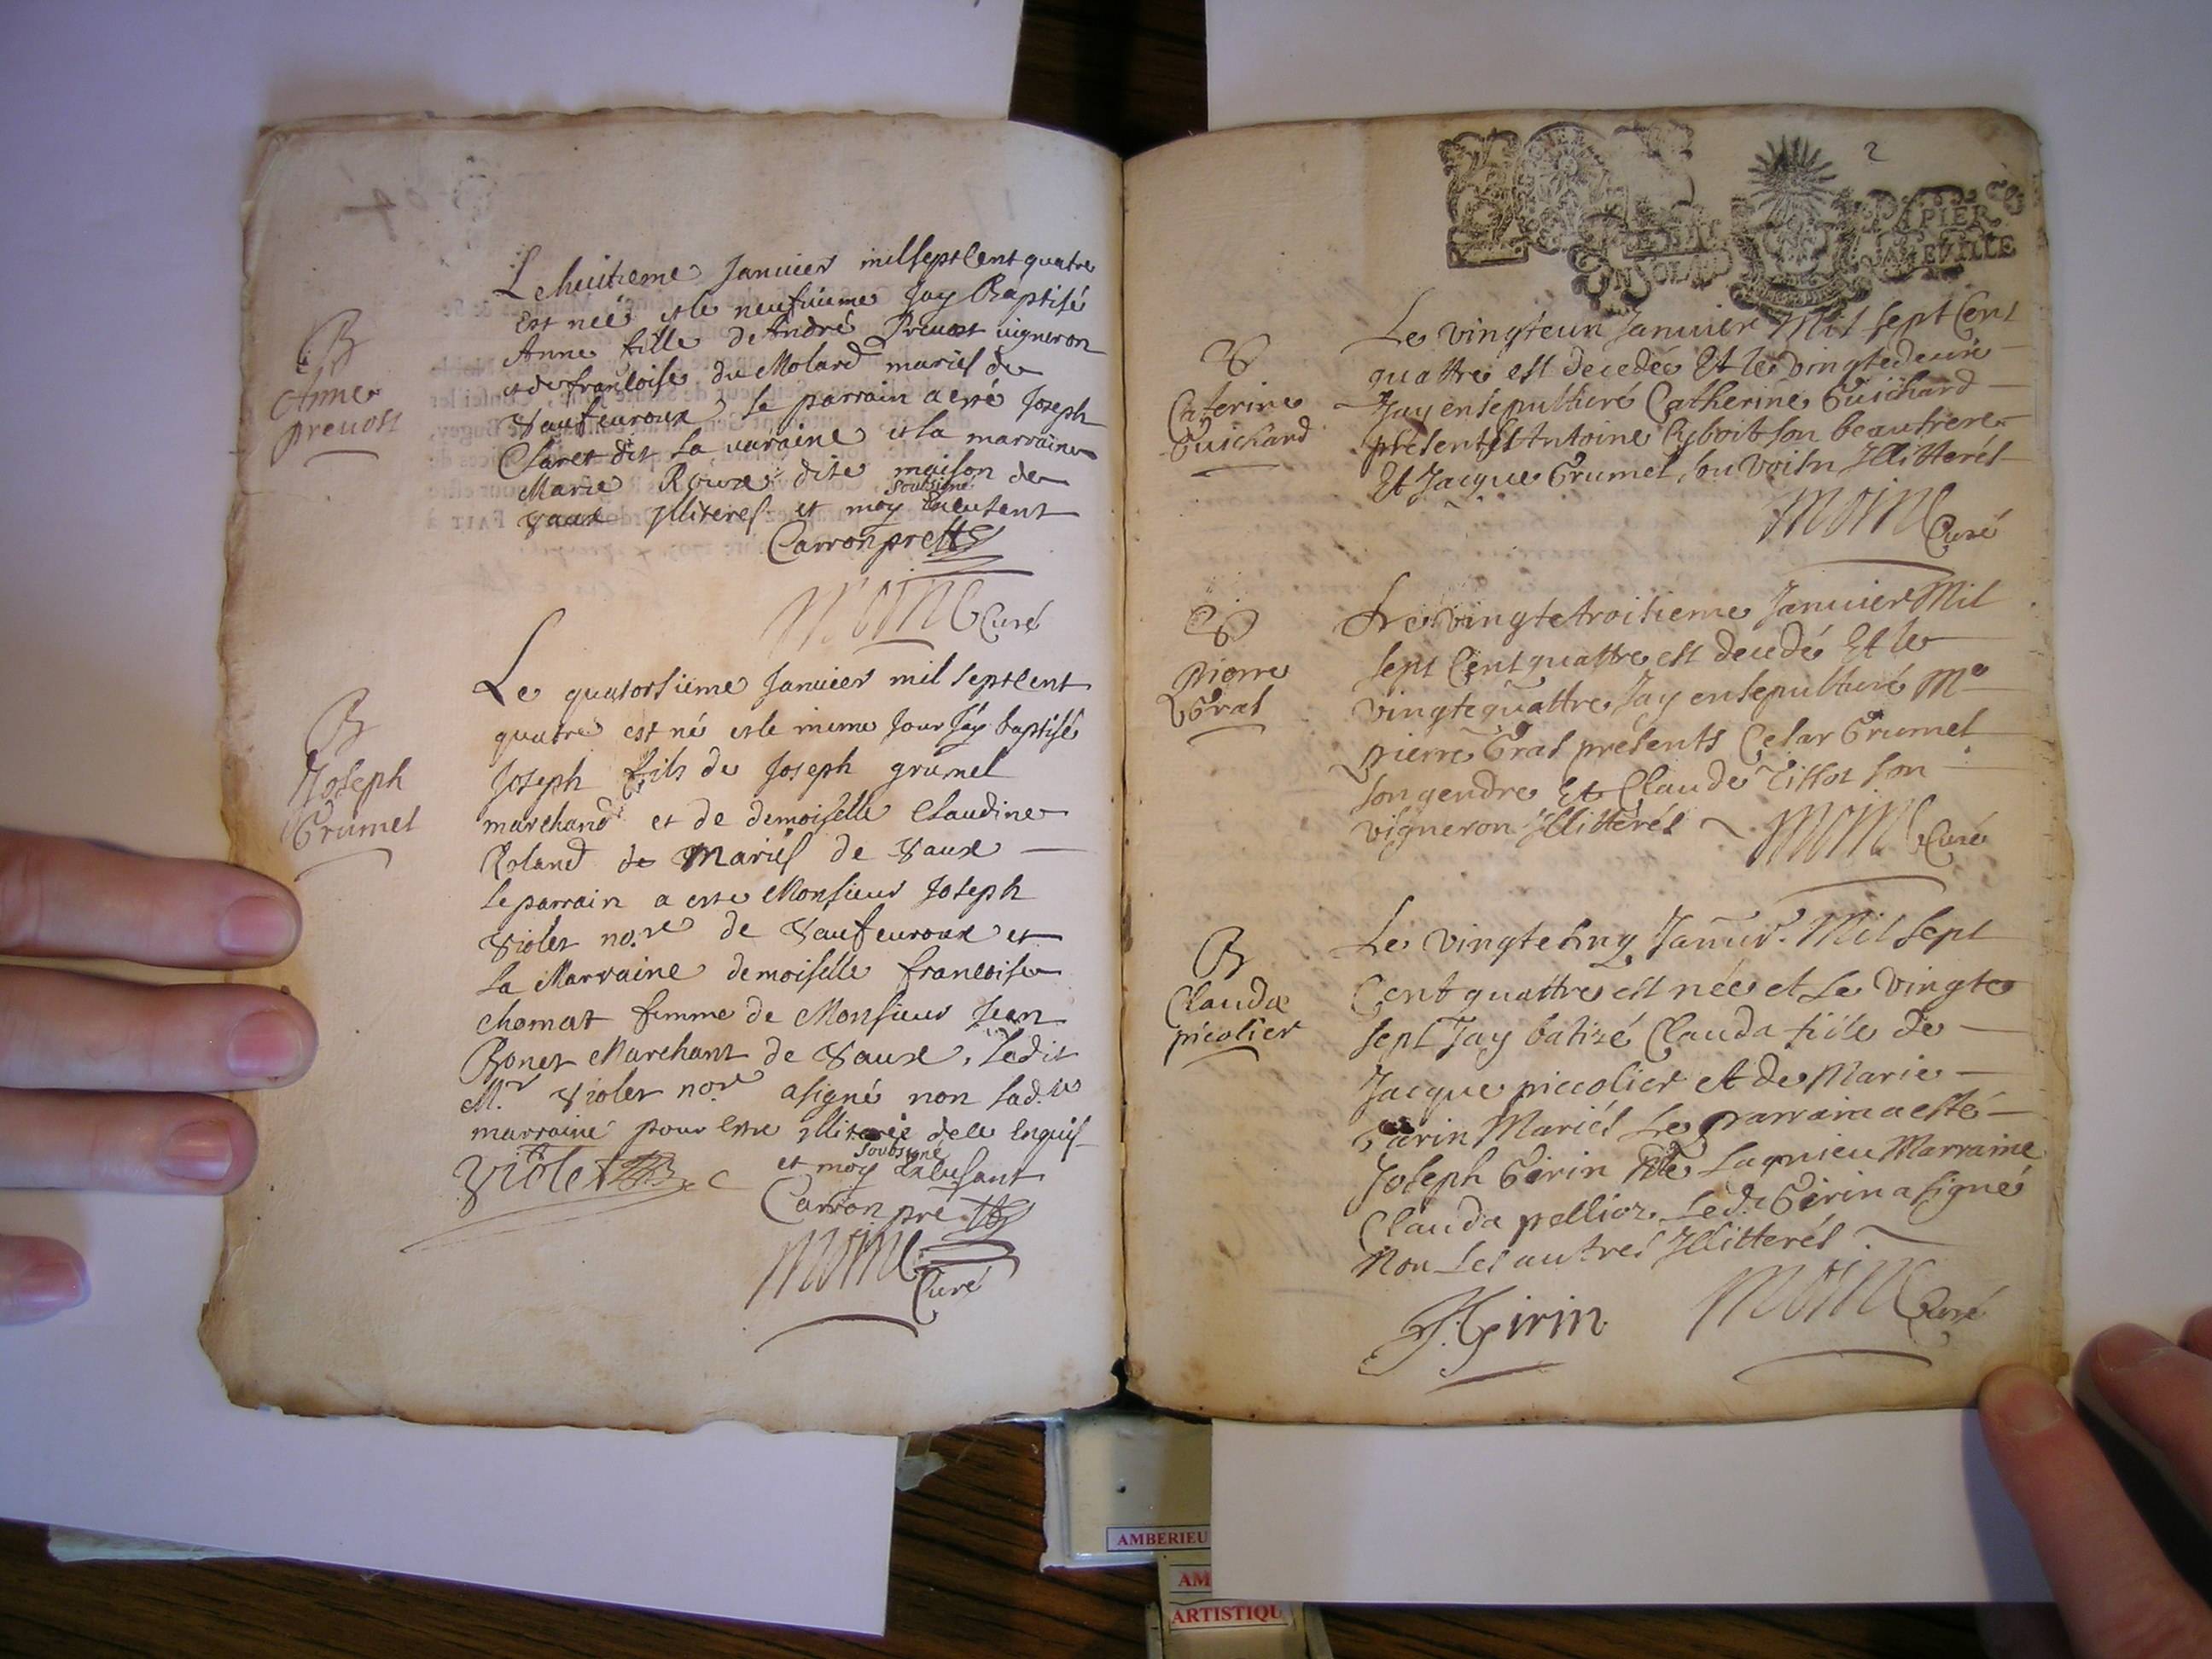 B
Anne
prevost
Le huitieme Janvier mil sept Cent quatre
Est neé et le neufvieme Jay Baptisé
Anne fille de André Prevost vigneron
et de françoise du Molard mariés de
Vaufevroux le parrain a esté Joseph
Claret dit la varaine et la marraine
Marie Roux dite maison de
Vaux Illiteres et moy soubsigné
Carron pretre
Moine Curé
B
Joseph
Grumel
Le quatorsieme Janvier mil sept Cent
quatre est né et le mime Jour Jay baptisé
Joseph fils de Joseph grumel
marchand et de demoiselle Claudine
Roland de Mariés de Vaux
le parrain a este Monsieur Joseph
Violet no.re de Vaufevroux et
la Marraine demoiselle francoise
Chomat femme de Monsieur Jean
Bonet Marchant de Vaux, ledit
M.r Violet no.re a signé non lad.te
marraine pour estre illiterée dele Enquis
et moy soubsigné
Violet
Carron pre
Moine
Curé
2
PAPIER
Caterine
Guichard
Le vingteun Janvier Mil sept Cent
quattre est decedée Et le vingtedeux
Jay ensepulturé Catherine Guichard
presents Antoine Cyboit son beaufrere
Et Jacque Grumel, son voisin Illitterés
Moine Curé
Pierre
Gras
Le vingtetroisieme Janvier Mil
sept Cent quattre est decedé Et le
vingtequattre Jay ensepulturé Me
pierre Gras présents Cesar Grumel
son gendre Et Claude Tissot son
vigneron Illitterés
Moine Curé
B
Clauda
picolier
Le vingtecinq Janvier. Mil sept
Cent quattre est née et Le vingte
sept Jay batizé Clauda fille de
Jacque piccolier et de Marie
Garin Mariés Le parrain a esté
Joseph Girin de Lagnieu Marraine
Clauda pellior. Led.t Girin a signé
Non Les autres Illitterés
J. Girin
Moine Curé
AMBERIEU
AM
ARTISTIQU